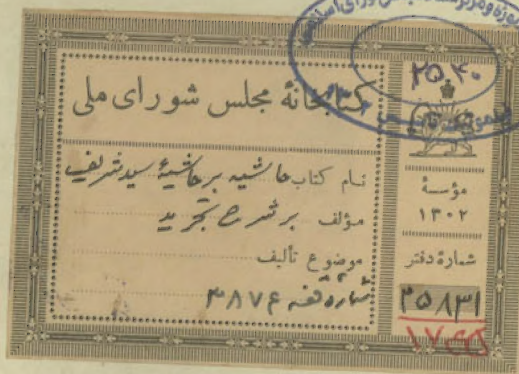 کتابخانهٔ مجلس شورای ملی
نام کتاب حاشیه بر حاشیهٔ سید شریف
مؤلف بر شرح تجرید
موضوع تألیف
شماره قفسه ۳۸۷۶
مؤسسهٔ
۱۳۰۲
شمارهٔ دفتر
۲۵۸۳۱